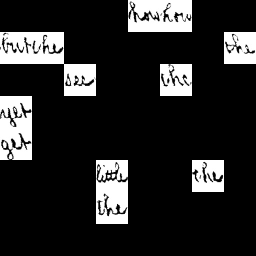 how how
but the the
see the
get
get
little the
the